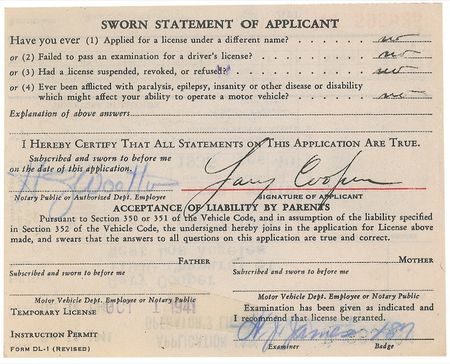 SWORN STATEMENT OF APPLICANT
Have you ever (1) Applied for a license under a different name? no
or (2) Failed to pass an examination for a driver's license? no
or (3) Had a license suspended, revoked, or refused? no
or (4) Ever been afflicted with paralysis, epilepsy, insanity or other disease or disability
which might affect your ability to operate a motor vehicle? no
Explanation of above answers
I HEREBY CERTIFY THAT ALL STATEMENTS ON THIS APPLICATION ARE TRUE.
Subscribed and sworn to before me
on the date of this application.
Gary Cooper
Notary Public or Authorized Dept. Employee SIGNATURE OF APPLICANT
ACCEPTANCE OF LIABILITY BY PARENTS
Pursuant to Section 350 or 351 of the Vehicle Code, and in assumption of the liability specified
in Section 352 of the Vehicle Code, the undersigned hereby joins in the application for License above
made, and swears that the answers to all questions on this application are true and correct.
FATHER MOTHER
Subscribed and sworn to before me Subscribed and sworn to before me
Motor Vehicle Dept. Employee or Notary Public Motor Vehicle Dept. Employee or Notary Public
TEMPORARY LICENSE OCT 1 1941 Examination has been given as indicated
and I recommend that license be granted.
INSTRUCTION PERMIT
Examiner Badge
FORM DL-1 (REVISED)